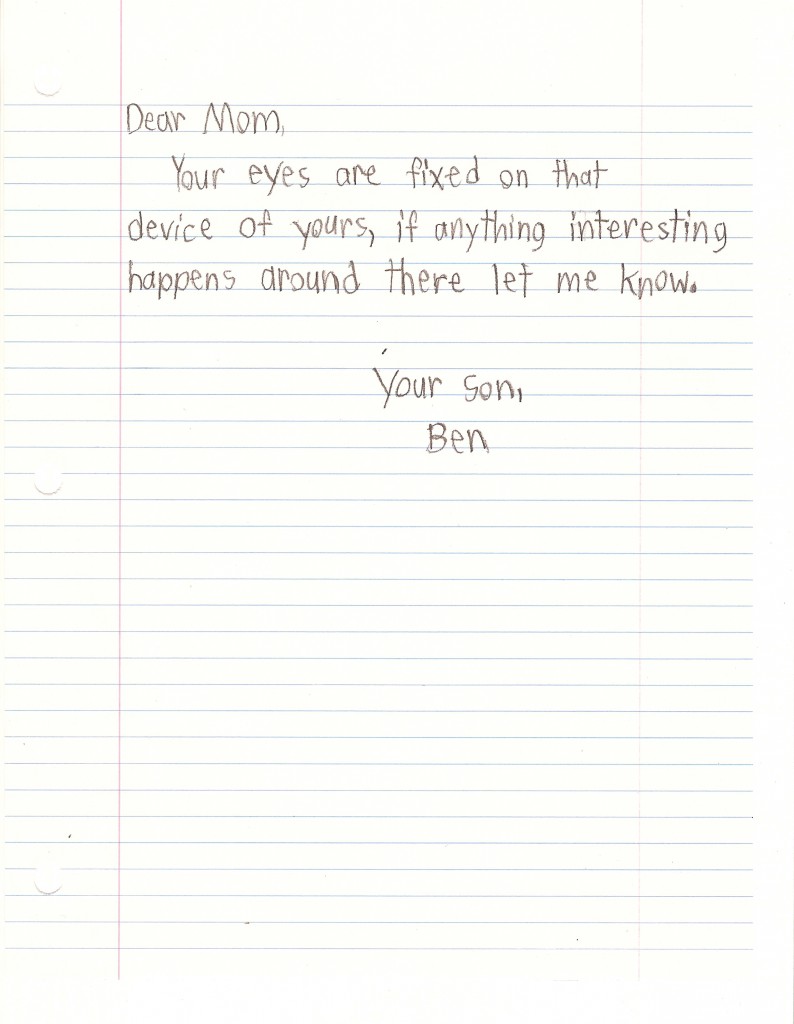 Dear Mom,
Your eyes are fixed on that
device of yours, if anything interesting
happens around there let me know.
Your son,
Ben